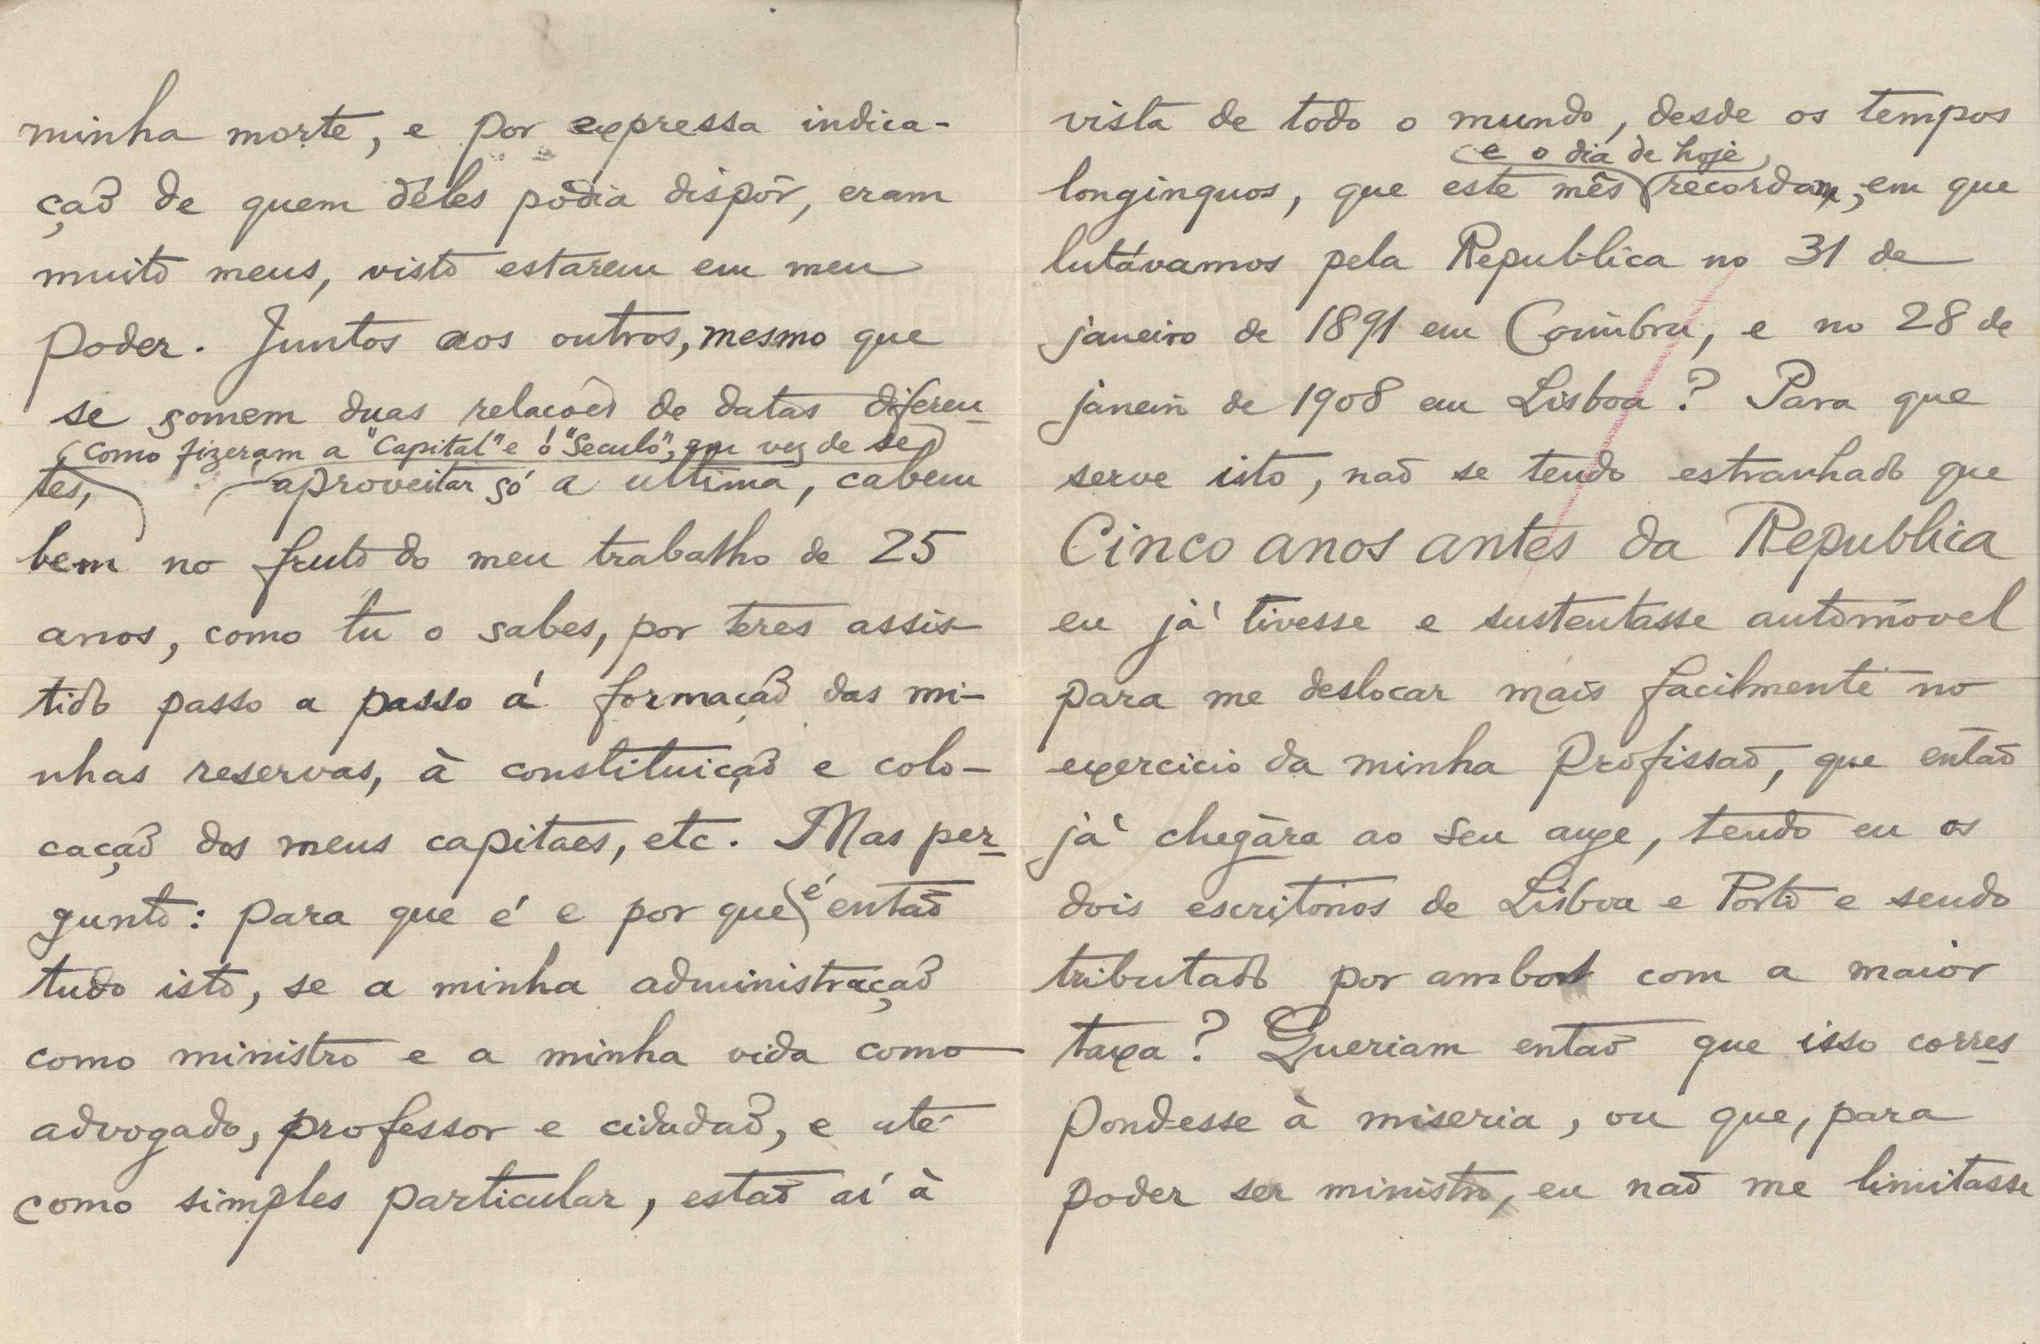 minha morte, e por expressa indica-
ção de quem dêles podia dispôr, eram
muito meus, visto estarem em meu
poder. Juntos aos outros, mesmo que
se somem duas relações de datas diferen-
como fizeram a "Capital" e o "Seculo", em vez de se
tes, aproveitar só a ultima, cabem
bem no fruto do meu trabalho de 25
anos, como tu o sabes, por teres assis-
tido passo a passo á formação das mi-
nhas reservas, à constituição e colo-
cação dos meus capitaes, etc. Mas per-
gunto: para que é e por que é então
tudo isto, se a minha administração
como ministro e a minha vida como
advogado, professor e cidadão, e até
como simples particular, estão aí à
vista de todo o mundo, desde os tempos
e o dia de hoje
longinquos, que este mês recordam, em que
lutávamos pela Republica no 31 de
janeiro de 1891 em Coimbra, e no 28 de
janeiro de 1908 em Lisboa? Para que
serve isto, não se tendo estranhado que
Cinco anos antes da Republica
eu já tivesse e sustentasse automovel
para me deslocar mais facilmente no
exercicio da minha profissão, que então
já chegára ao seu auge, tendo eu os
dois escritórios de Lisboa e Porto e sendo
tributado por ambos com a maior
taxa? Queriam então que isso corres-
pondesse à miseria, ou que, para
poder ser ministro, eu não me limitasse